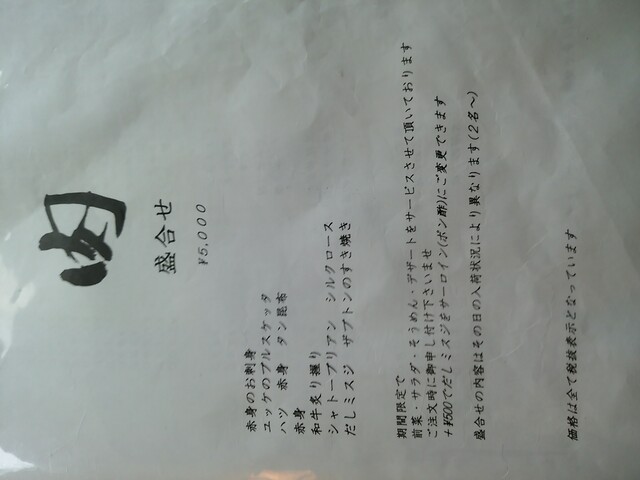 盛合せ
¥5,000
赤身のお刺身
ユッケのブルスケッタ
ハツ 赤身 タン昆布
赤身
和牛炙り握り
シャトーブリアン シルクロース
だしミスジ ザブトンのすき焼き
期間限定で
前菜・サラダ・そうめん・デザートをサービスさせて頂いております
ご注文時に御申し付け下さいませ
+¥500でだしミスジをサーロイン(ポン酢)にご変更できます
盛合せの内容はその日の入荷状況により異なります(2名〜)
価格は全て税抜表示となっています